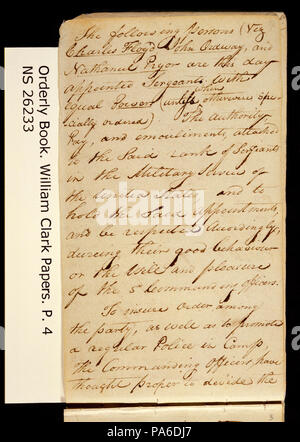 Orderly Book. William Clark Papers. P. 4
NS 26233
The following Persons (Viz
Charles Floyd John Ordway, and
Nathaniel Pryor are this day
appointed Sergeants. with
when
equal Power (unless otherwise Spe-
cially ordered) The Authority
Pay, and emouliments, attached
to the Said rank of Sergeants
in the Military Service of
the United States and to
hold the Said appointments,
and be respected accordingly,
dureing their good behaviour
or the Will and pleasure
of the Sd Commanding officers.
To insure order among
the party, as well as to promote
a regular Police in Camp,
the Commanding Officers, have
thought proper to devide the
3
alamy
PA6DJ7
www.alamy.com